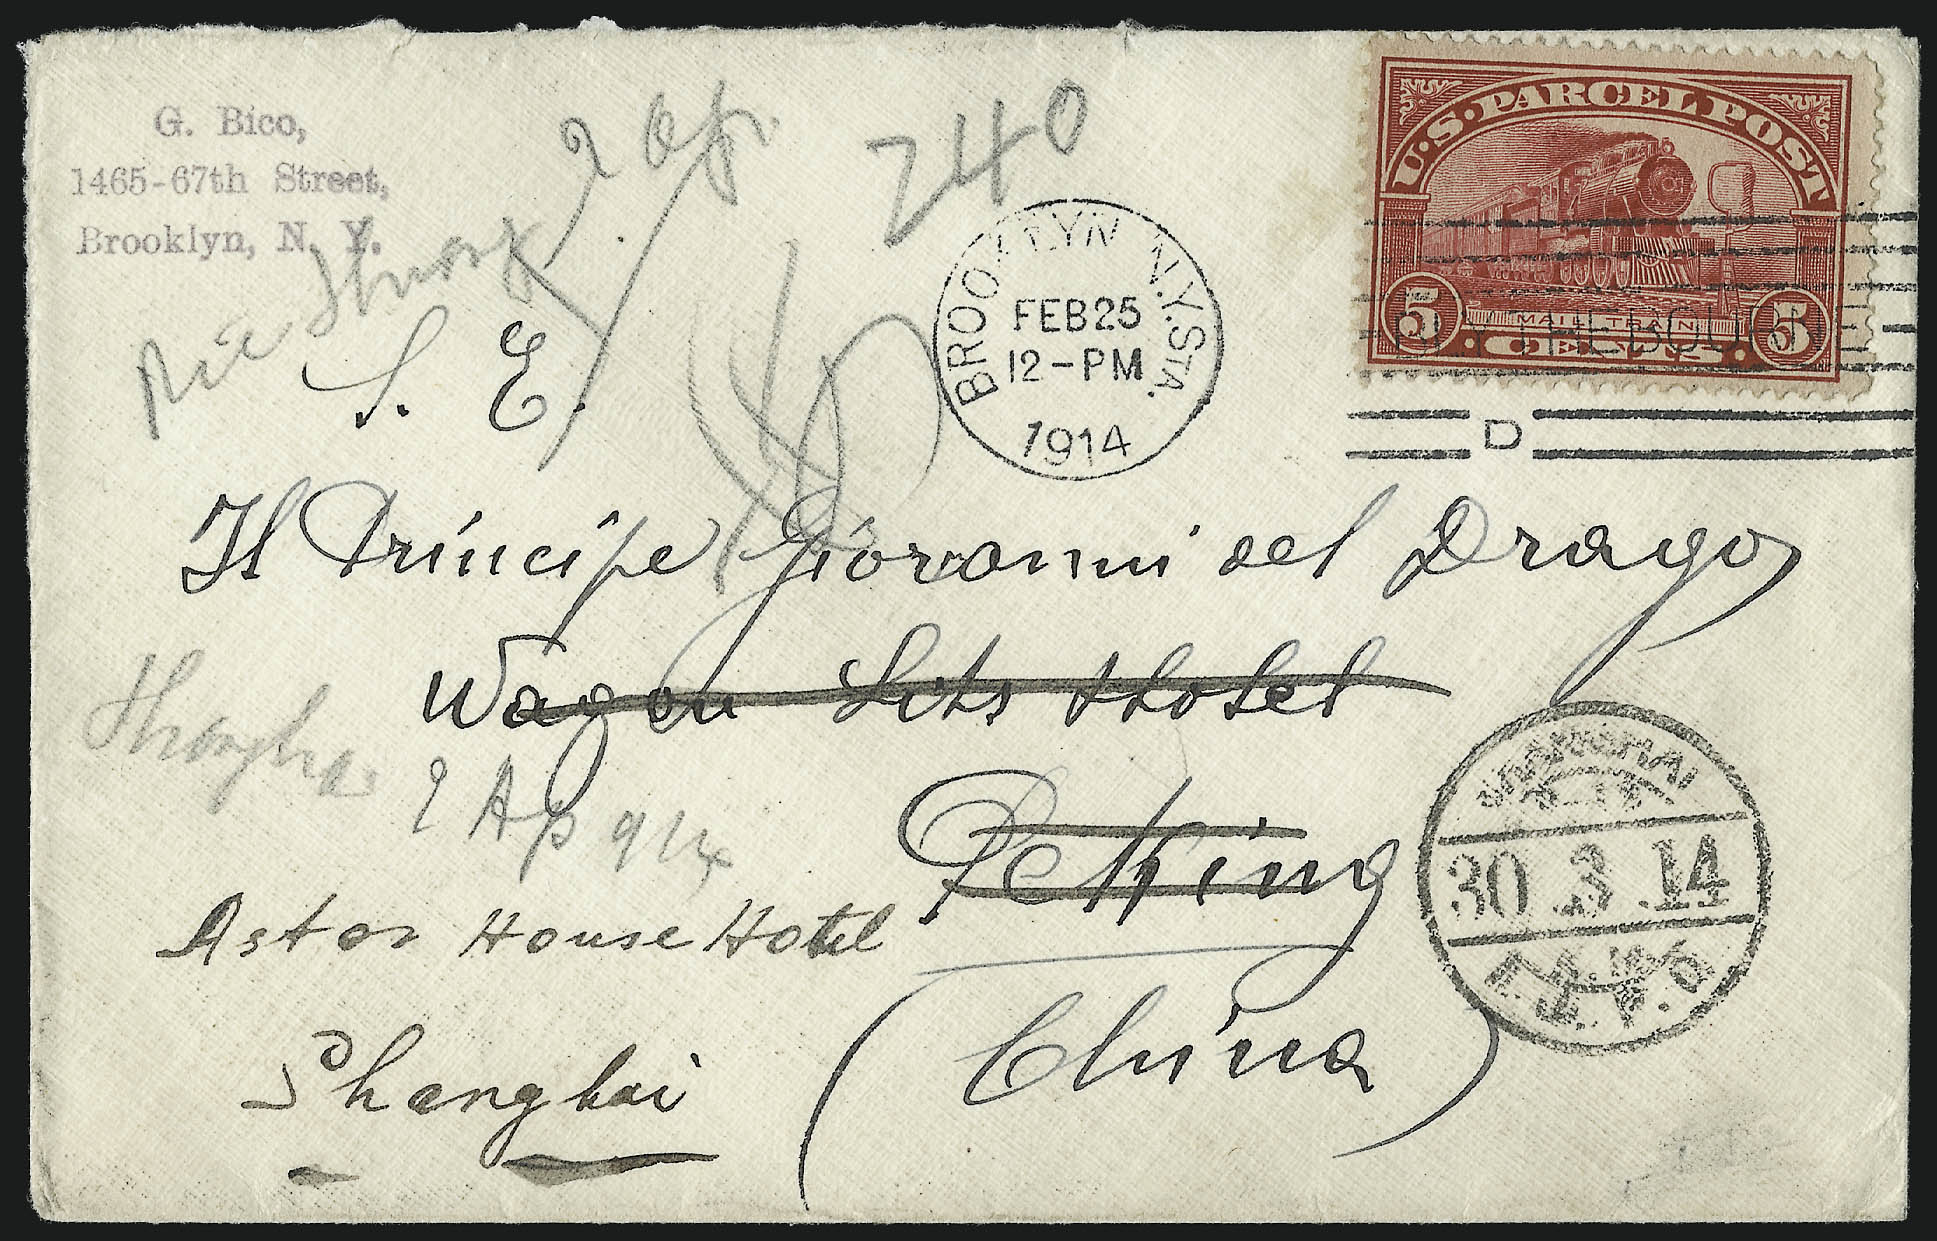 G. Bico,
1465-67th Street,
Brooklyn, N. Y.
2 Ap.
240
BROOKLYN N.Y. STA.
FEB 25
12-PM
1914
U.S. PARCEL POST
5 MAIL TRAIN 5
CENTS
D
S. E.
Il Principe Giovanni del Drago
Wagon Lits Hotel
Peking
(China)
Shanghai
2 Ap 914
Astor House Hotel
Shanghai
SHANGHAI
30 3 14
I.J.P.O